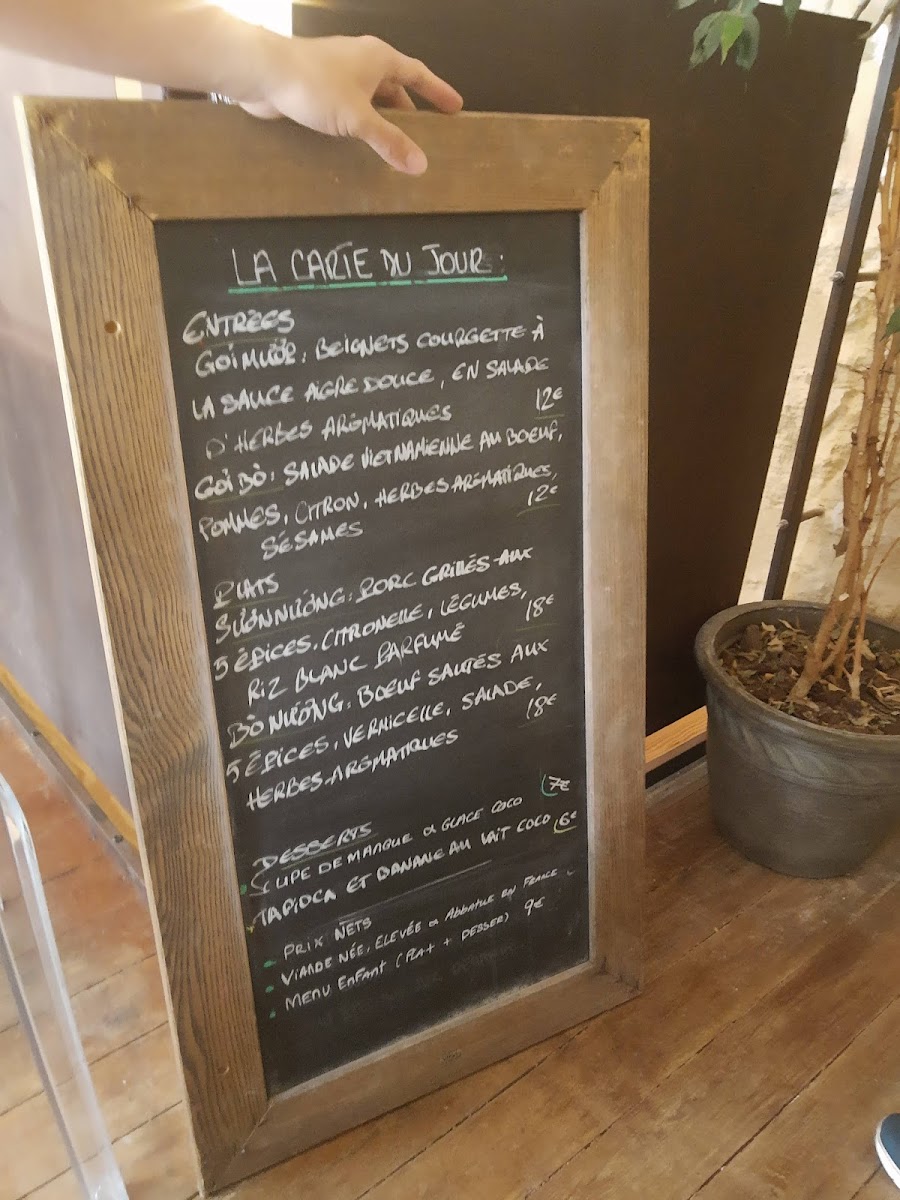 LA CARTE DU JOUR:
ENTRÉES
GOÏ MƯỚP: BEIGNETS COURGETTE À
LA SAUCE AIGRE DOUCE, EN SALADE
D'HERBES AROMATIQUES 12€
GOÏ BÒ: SALADE VIETNAMIENNE AU BOEUF,
POMMES, CITRON, HERBES AROMATIQUES,
SÉSAMES 12€
PLATS
SƯỜN NƯỚNG: PORC GRILLÉS AUX
5 ÉPICES, CITRONELLE, LÉGUMES,
RIZ BLANC PARFUMÉ 18€
BÒ NƯỚNG: BOEUF SAUTÉS AUX
5 ÉPICES, VERNICELLE, SALADE,
HERBES AROMATIQUES 18€
DESSERTS
SOUPE DE MANGUE & GLACE COCO (7€
TAPIOCA ET BANANE AU LAIT COCO (6€
PRIX NETS
VIANDE NÉE, ELEVÉE & ABBATUE EN FRANCE
MENU ENFANT (PLAT + DESSER) 9€